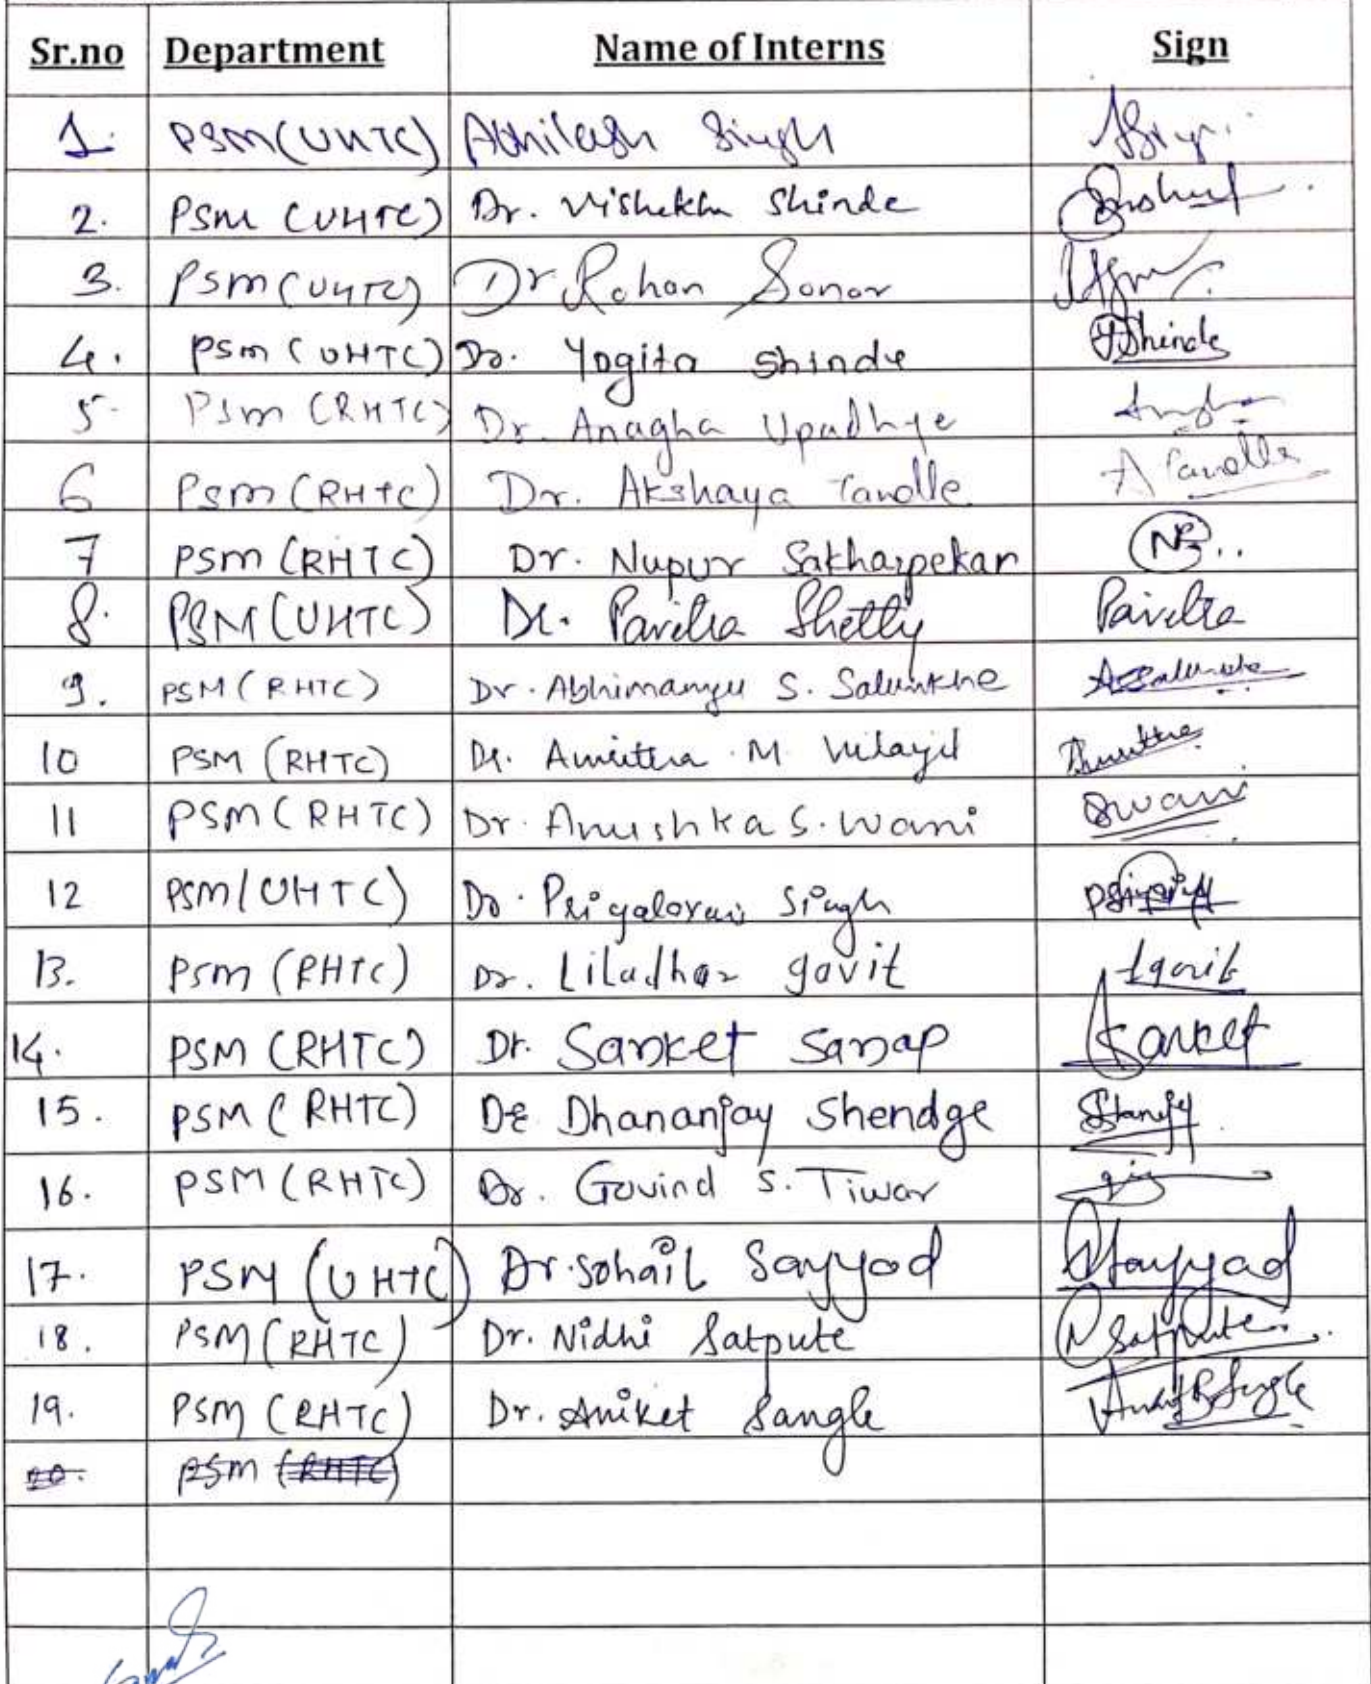 Sr.no Department Name of Interns Sign
1. PSM(UHTC) Abhilash Singh
2. PSM (UHTC) Dr. Vishakha Shinde
3. PSM(UHTC) Dr Rohan Sonar
4. PSM (UHTC) Dr. Yogita Shinde YShinde
5. PSM (RHTC) Dr. Anagha Upadhye
6 PSM (RHTC) Dr. Akshaya Tandle A Tandle
7 PSM (RHTC) Dr. Nupur Sakharpekar
8. PSM(UHTC) Dr. Pavitra Shetty Pavitra
9. PSM (RHTC) Dr. Abhimanyu S. Salunkhe ASalunkhe
10 PSM (RHTC) Dr. Amrittha M. Amrittha
11 PSM (RHTC) Dr. Anushka S. Wani Swani
12 PSM (UHTC) Dr. Singh
13. PSM (RHTC) Dr. Liladhar gavit lgavit
14. PSM (RHTC) Dr. Sanket Sanap Sanket
15. PSM (RHTC) Dr Dhananjay Shendge
16. PSM (RHTC) Dr. Govind S. Tiwar
17. PSM (UHTC) Dr. Sohail Sayyad Sayyad
18. PSM (RHTC) Dr. Nidhi Satpute NSatpute
19. PSM (RHTC) Dr. Aniket Sangle
20. PSM (RHTC)